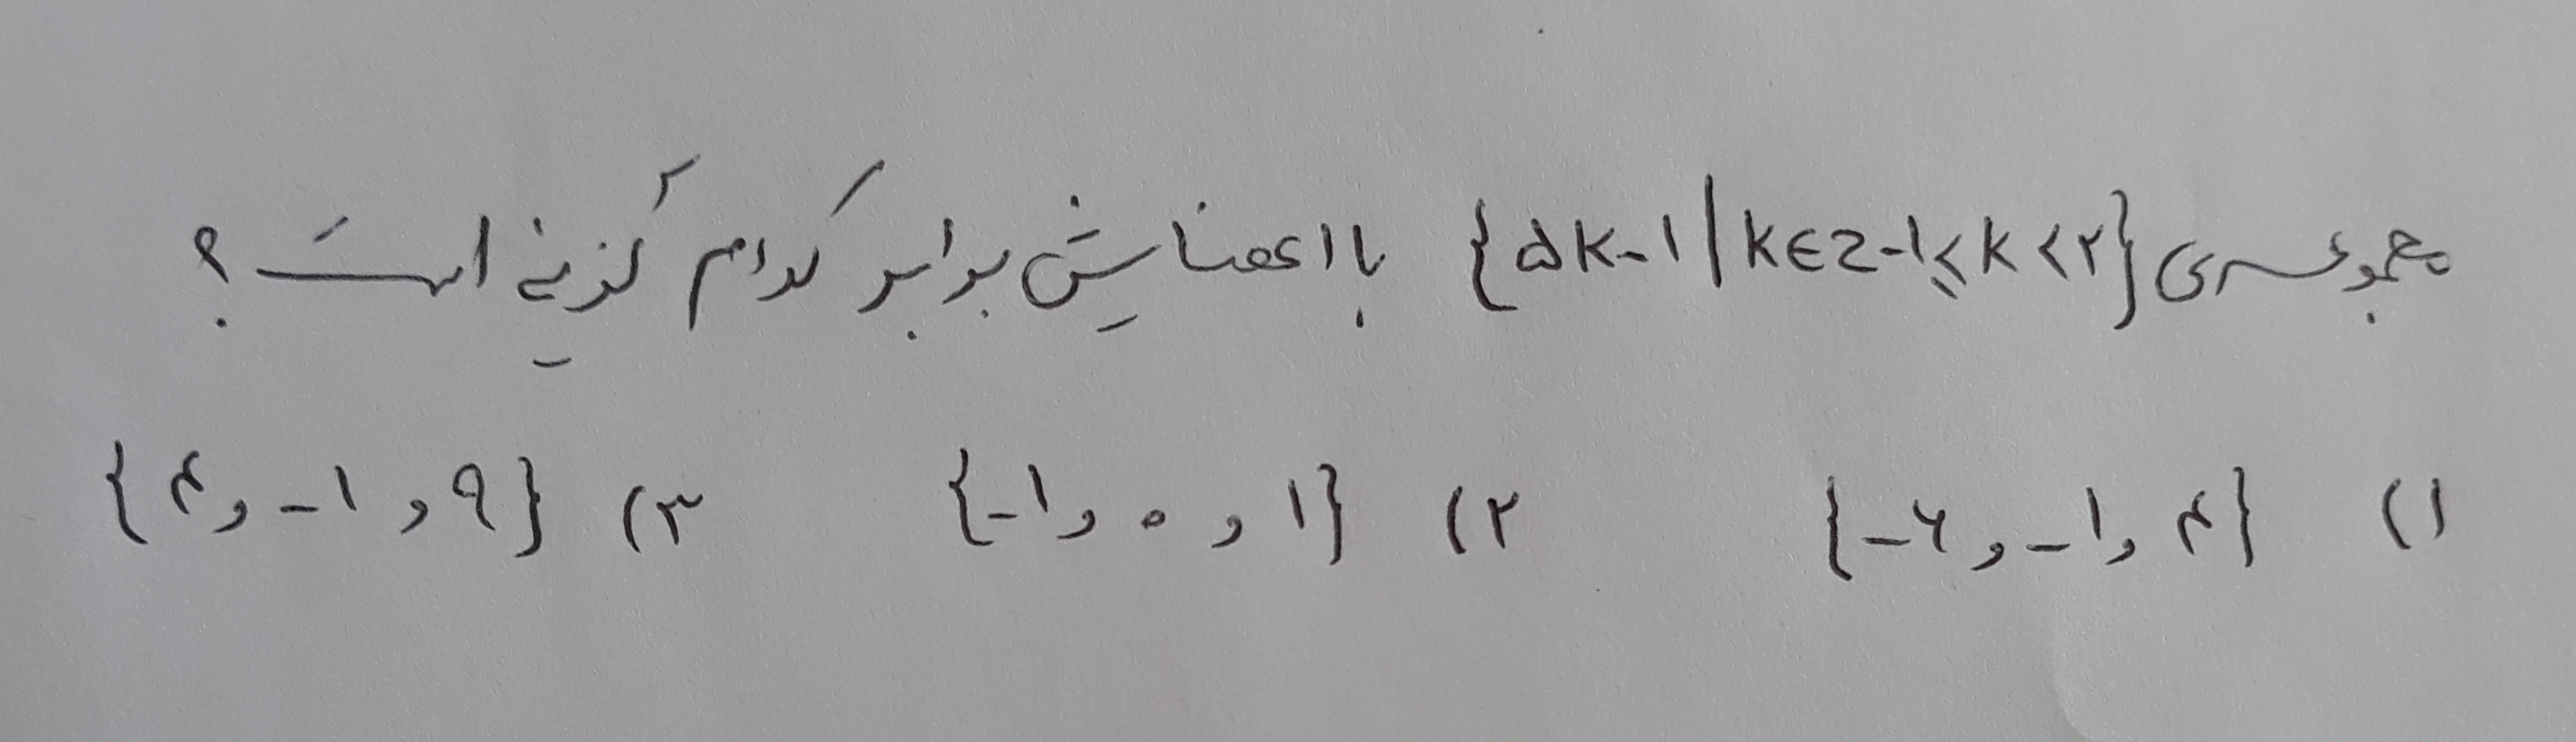 مجموعه‌ی {۵k-۱|k∈z-۱≤k<۲} با اعضایش برابر کدام گزینه است؟
۱) {-۶ و -۱ و ۴} ۲) {-۱ و ۰ و ۱} ۳) {۴ و -۱ و ۹}